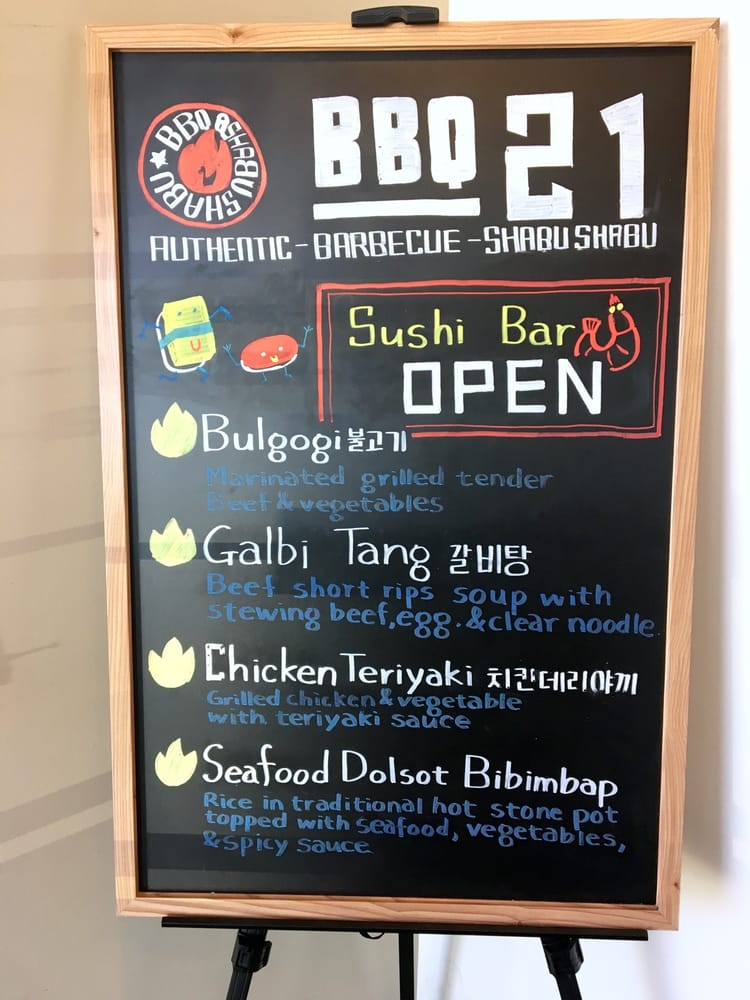 BBQ @SHABU SHABU
BBQ 21
AUTHENTIC - BARBECUE - SHABU SHABU
Sushi Bar
OPEN
Bulgogi 불고기
Marinated grilled tender
Beef & vegetables
Galbi Tang 갈비탕
Beef short rips soup with
stewing beef, egg. & clear noodle
Chicken Teriyaki 치킨데리야끼
Grilled chicken & vegetable
with teriyaki sauce
Seafood Dolsot Bibimbap
Rice in traditional hot stone pot
topped with seafood, vegetables,
& spicy sauce